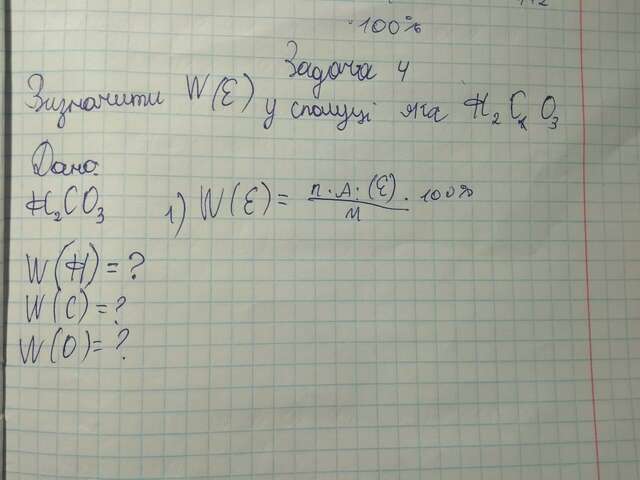 100%
Задача 4
Визначити W(E) у сполуці яка H₂CO₃
Дано:
H₂CO₃
1) W(E) = n·A·(E)/M · 100%
W(H)=?
W(C)=?
W(O)=?